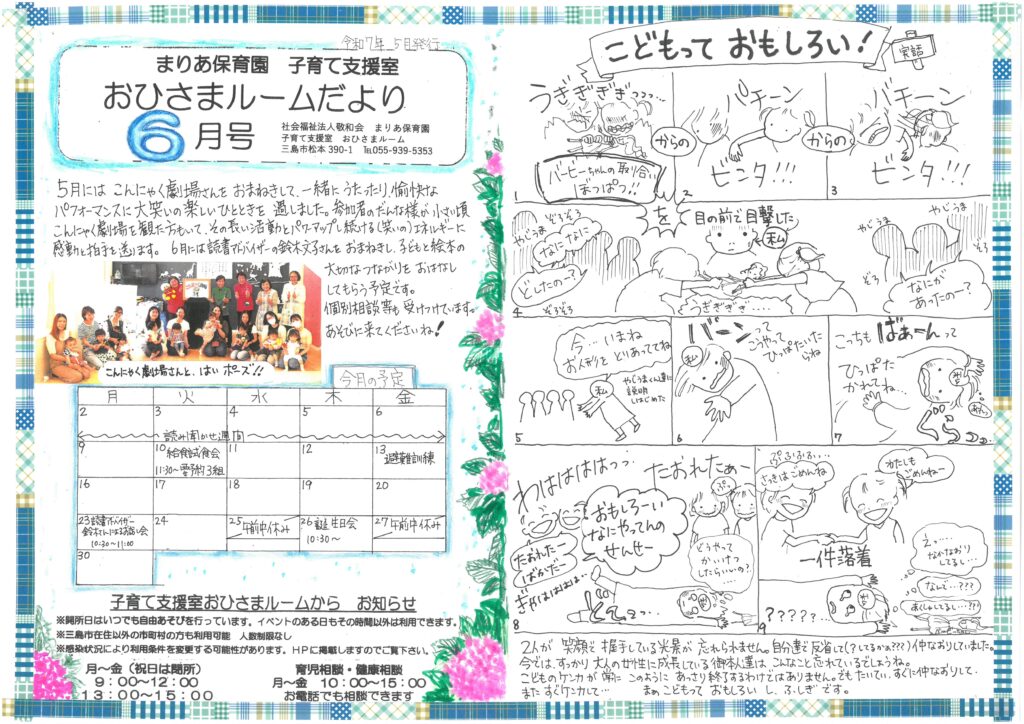 令和7年 5月発行
まりあ保育園 子育て支援室
おひさまルームだより
6月号
社会福祉法人敬和会 まりあ保育園
子育て支援室 おひさまルーム
三島市松本 390-1 ℡055-939-5353
5月には こんにゃく劇場さんを おまねきして、一緒にうたったり 愉快な
パフォーマンスに大笑いの楽しいひとときを 過しました。参加者のだんな様が小さい頃
こんにゃく劇場を観た方もいて、その長い活動とパワーアップし続ける(笑いの)エネルギーに
感動と拍手を送ります。 6月には読書アドバイザーの鈴木文子さんをおまねきし、子どもと絵本の
大切なつながりを おはなし
してもらう予定です。
個別相談等も受けつけています。
あそびに来てくださいね!
こんにゃく劇場さんと、はい ポーズ!!
今月の予定
月 火 水 木 金
2 3 4 5 6
読み聞かせ週間
9 10 11 12 13
給食試食会
11:30〜 要予約3組
避難訓練
16 17 18 19 20
23 24 25 26 27
読書アドバイザー
鈴木さんによるお話し会
10:30〜11:00
午前中休み
誕生日会
10:30〜
午前中休み
30
子育て支援室おひさまルームから お知らせ
※開所日はいつでも自由あそびを行っています。イベントのある日もその時間以外は利用できます。
※三島市在住以外の市町村の方も利用可能 人数制限なし
※感染状況により利用条件を変更する可能性があります。HPに掲載しますのでご覧下さい。
月〜金(祝日は閉所)
9:00〜12:00
13:00〜15:00
育児相談・健康相談
月〜金 10:00〜15:00
お電話でも相談できます
こどもって おもしろい!
実話
うぎぎぎぎっっっ…
バービーちゃんの取り合い
まっぱつ!!
1
からの
バチーン
ビンタ!!!
2
からの
バチーン
ビンタ!!!
3
を
目の前で目撃した
私
やじうま
ぞろぞろ
なになに
どしたのー?
ぞろぞろ
うぎぎぎぎ…
やじうま
ぞろ
ぞろ
なにが
あったのー?
4
今…いまね
お人形を とりあっててね
私
やじうまくん達に
説明
しはじめた
5
バーンって
こうやって
ひっぱたいた
らね
私
6
こっちも ばぁーんって
ひっぱた
かれてね、
7
わはははっっ
たおれたぁー
おもしろーい
なにやってんの
せんせー
たおれたー
ばかだー
ぎゃははははは
どうやって
かいけつ
したらいいの?
8
ぷふふふ…
さっきはごめんね
わたしも
ごめんねー
一件落着
えっ…
なかなおり
してるし…
なんで…???
あくしゅしてるし…???
?????
9
2人が 笑顔で握手している光景が 忘れられません。自分達で反省して(?してるかぁ???)仲なおりしていました。
今では、すっかり 大人の女性に成長している御本人達は こんなこと忘れているでしょうね。
こどものケンカが常に このように あっさり終了するわけではありません。でもたいてい、すぐに仲なおりして、
また すぐケンカして… まぁ こどもって おもしろい し、ふしぎ です。